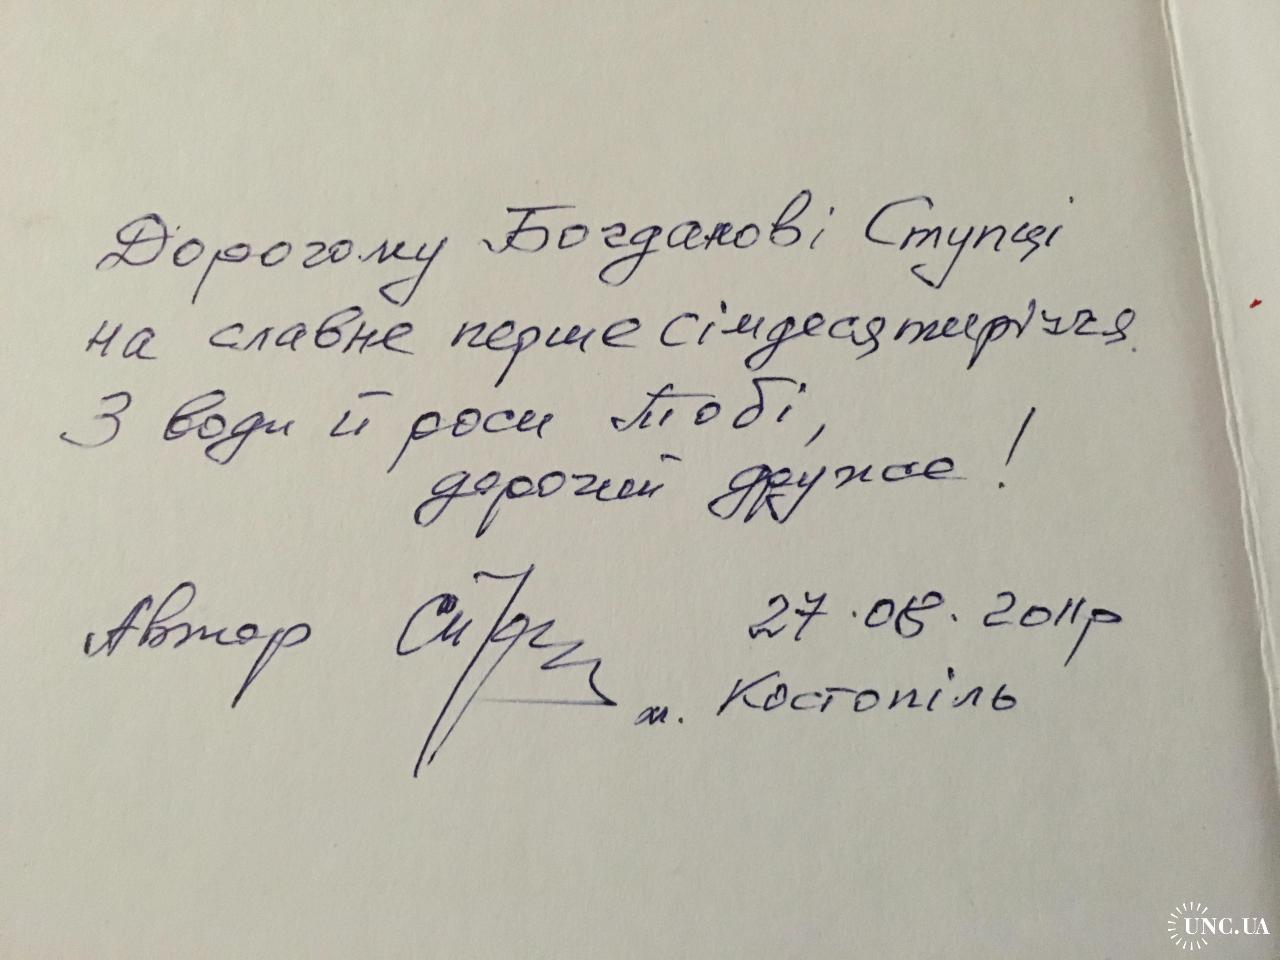 Дорогому Богданові Ступці
на славне перше сімдесятиріччя.
З води й роси Тобі,
дорогий друже!
Автор
27.08.2011р
м. Костопіль
UNC.UA